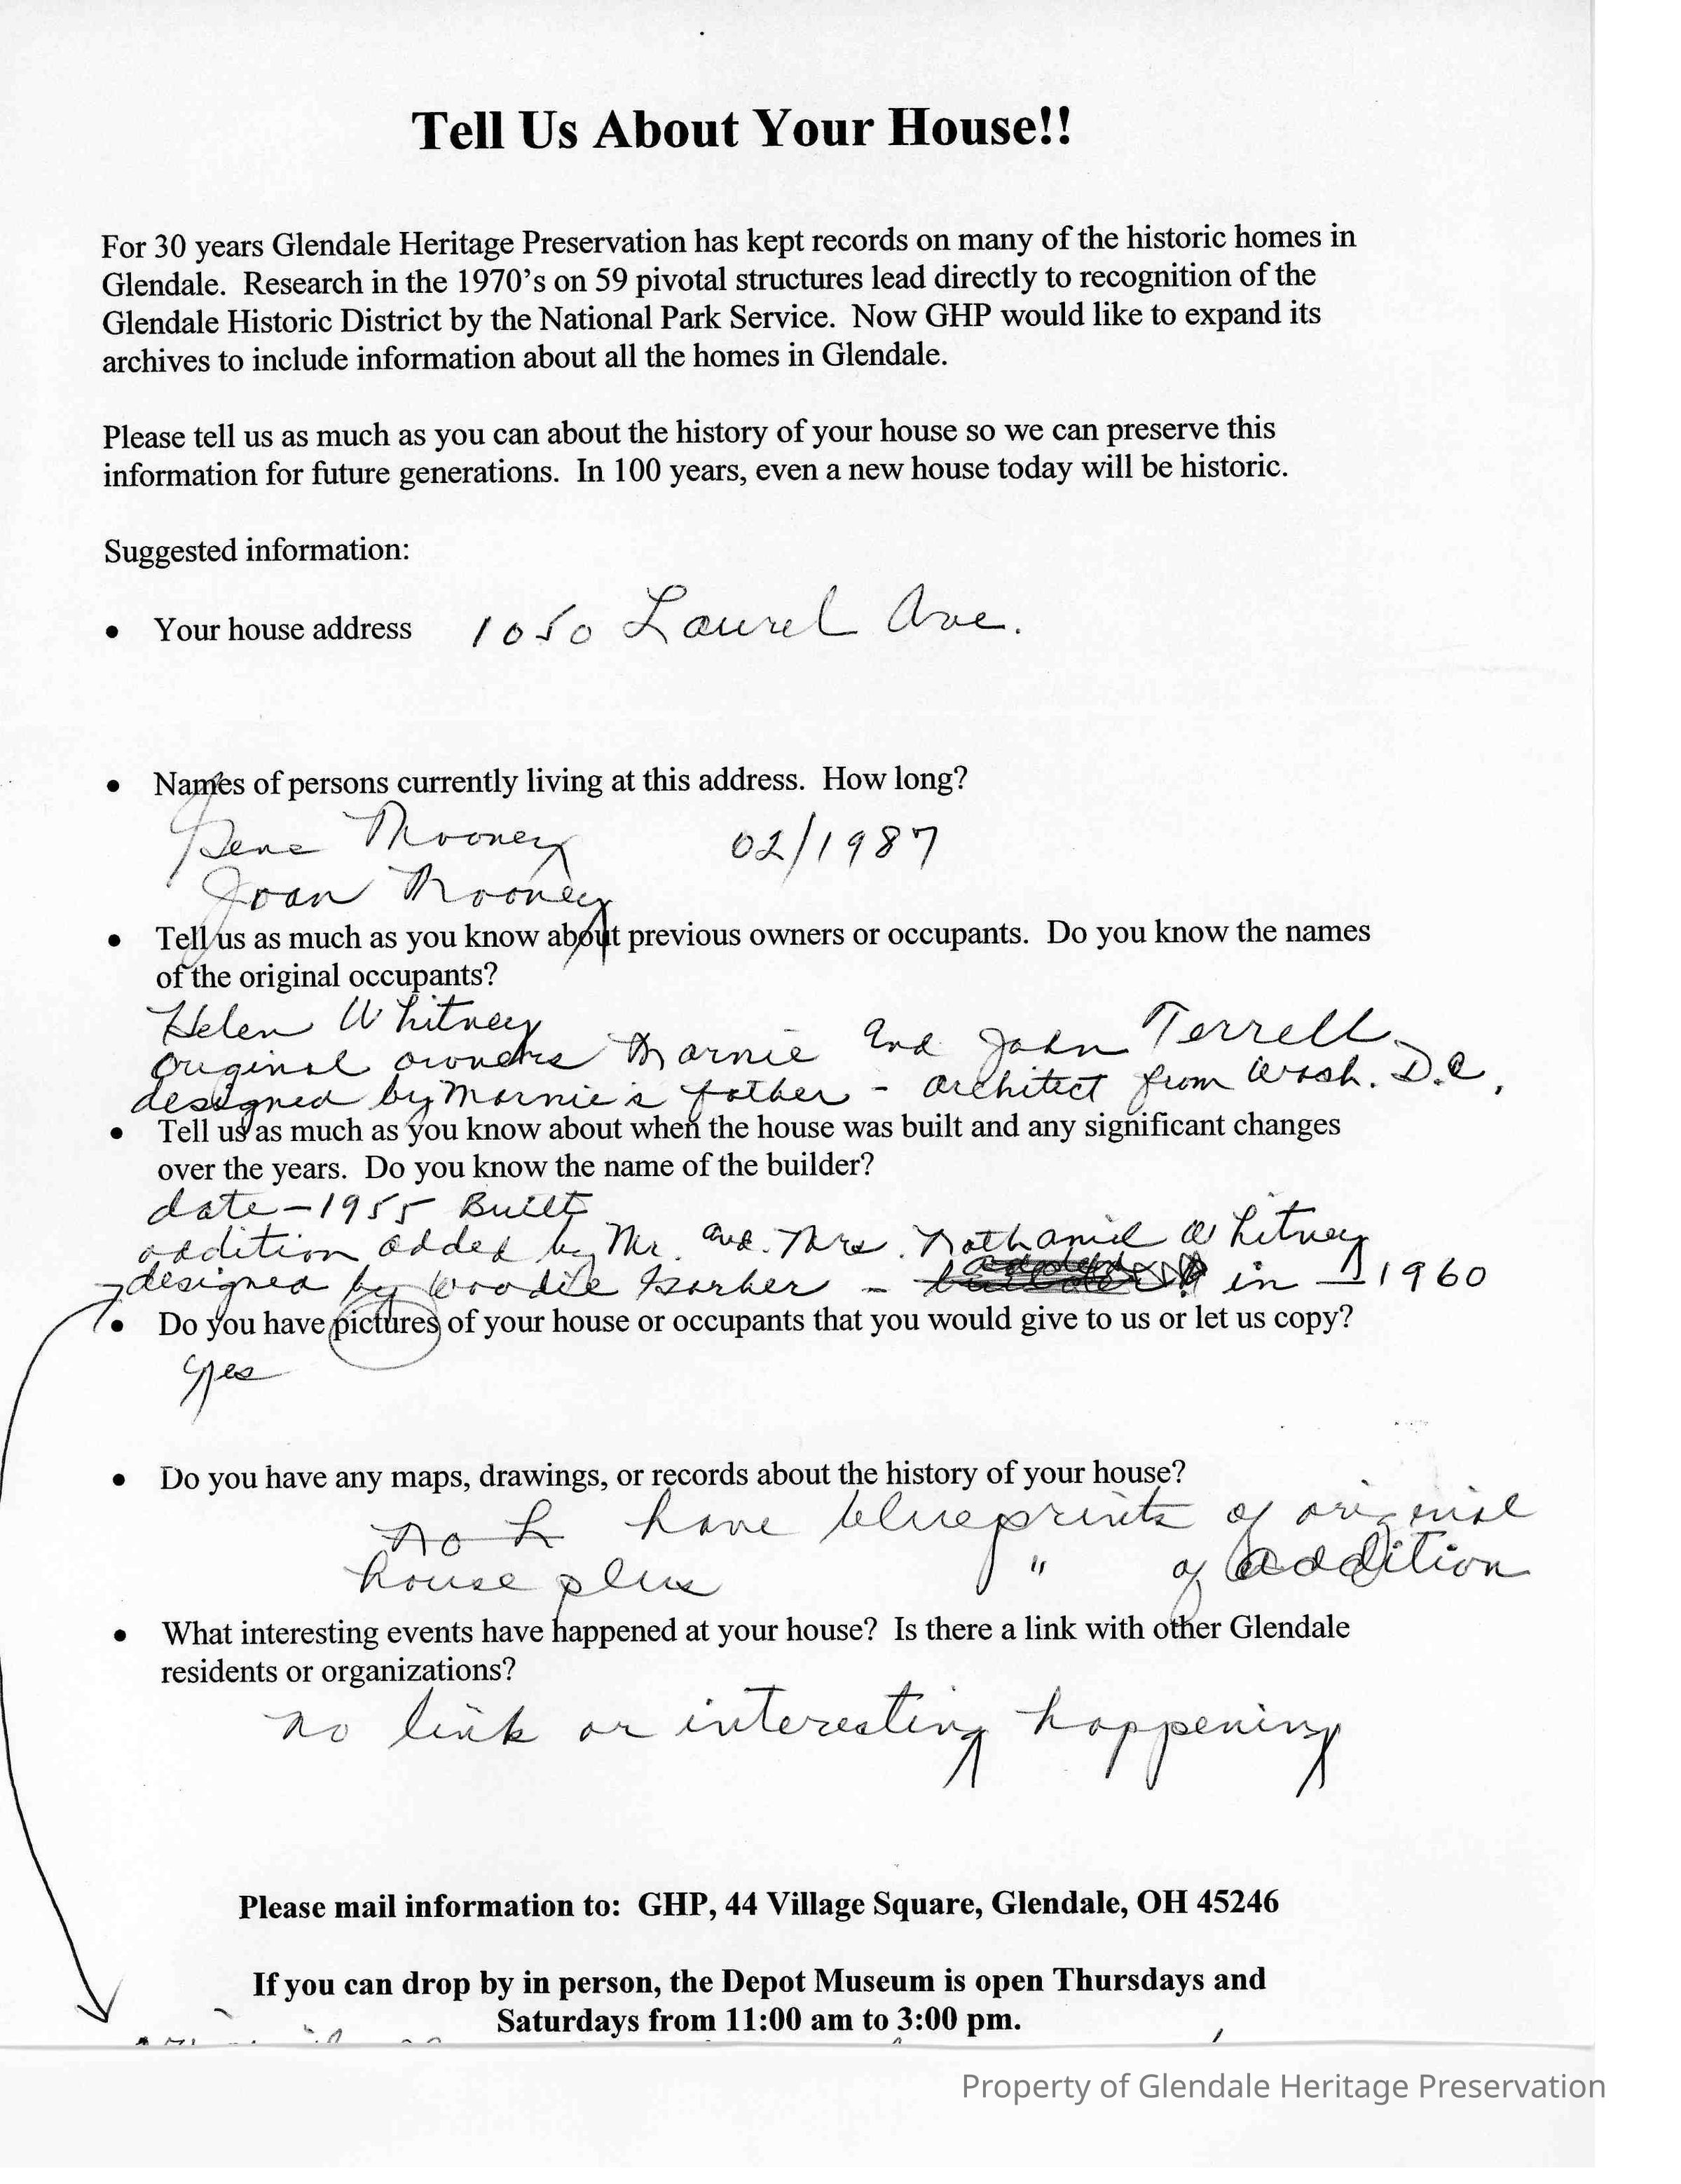 Tell Us About Your House!!
For 30 years Glendale Heritage Preservation has kept records on many of the historic homes in
Glendale. Research in the 1970's on 59 pivotal structures lead directly to recognition of the
Glendale Historic District by the National Park Service. Now GHP would like to expand its
archives to include information about all the homes in Glendale.
Please tell us as much as you can about the history of your house so we can preserve this
information for future generations. In 100 years, even a new house today will be historic.
Suggested information:
• Your house address 1050 Laurel Ave.
• Names of persons currently living at this address. How long?
Gene Mooney 02/1987
Joan Mooney
• Tell us as much as you know about previous owners or occupants. Do you know the names
of the original occupants?
Helen Whitney
original owners Marnie and John Terrell
designed by Marnie's father - architect from Wash. D.C.
• Tell us as much as you know about when the house was built and any significant changes
over the years. Do you know the name of the builder?
date-1955 Built
addition added by Mr. and. Mrs. Nathaniel Whitney
designed by Woodie - in 1960
• Do you have pictures of your house or occupants that you would give to us or let us copy?
yes
• Do you have any maps, drawings, or records about the history of your house?
have blueprints of original
house plus " of addition
• What interesting events have happened at your house? Is there a link with other Glendale
residents or organizations?
no link or interesting happening
Please mail information to: GHP, 44 Village Square, Glendale, OH 45246
If you can drop by in person, the Depot Museum is open Thursdays and
Saturdays from 11:00 am to 3:00 pm.
Property of Glendale Heritage Preservation